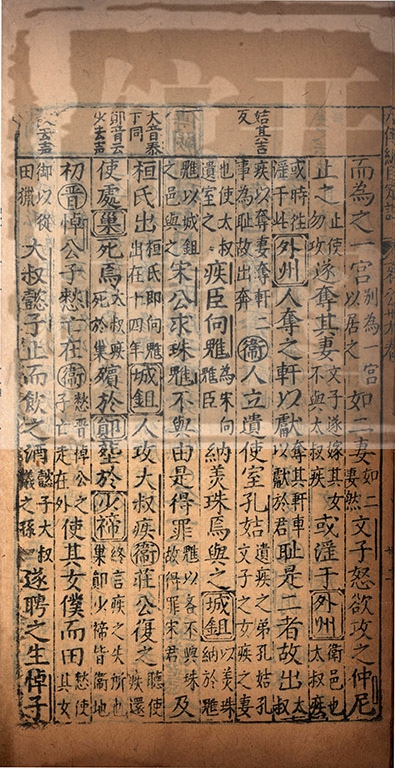 而為之一宮別為一宮以居之如二妻如二妻然文子怒欲攻之仲尼
止之止使勿攻遂奪其妻文子遂嫁其女不與太叔疾或淫于外州外州衛邑也太叔疾
或時往淫于此外州人奪之軒以獻奪其軒車以獻於君恥是二者故出太叔
姞其吉反
疾以奪妻奪軒二事為恥故出奔衛人立遺使室孔姞遺疾之弟孔姞孔文子之女疾之妻
使太叔遺室之疾臣向魋為宋向魋臣納美珠焉與之城鉏以美珠納於魋
魋以城鉏之邑與之宋公求珠魋不與由是得罪魋以吝不與珠故得罪宋君及
大音泰下同
桓氏出桓氏即向魋出在十四年城鉏人攻大叔疾衛莊公復之聽使疾還
鄖音云少去声
使處巢死焉大叔疾死於巢殯於鄖葬於少禘終言疾之失所也巢鄖少禘皆衛地
初晉悼公子憖亡在衛憖晉悼公之子亡走在外使其女僕而田憖使其女
僕御以從田獵大叔懿子止而飲之酒懿子大叔儀之孫遂聘之生悼子